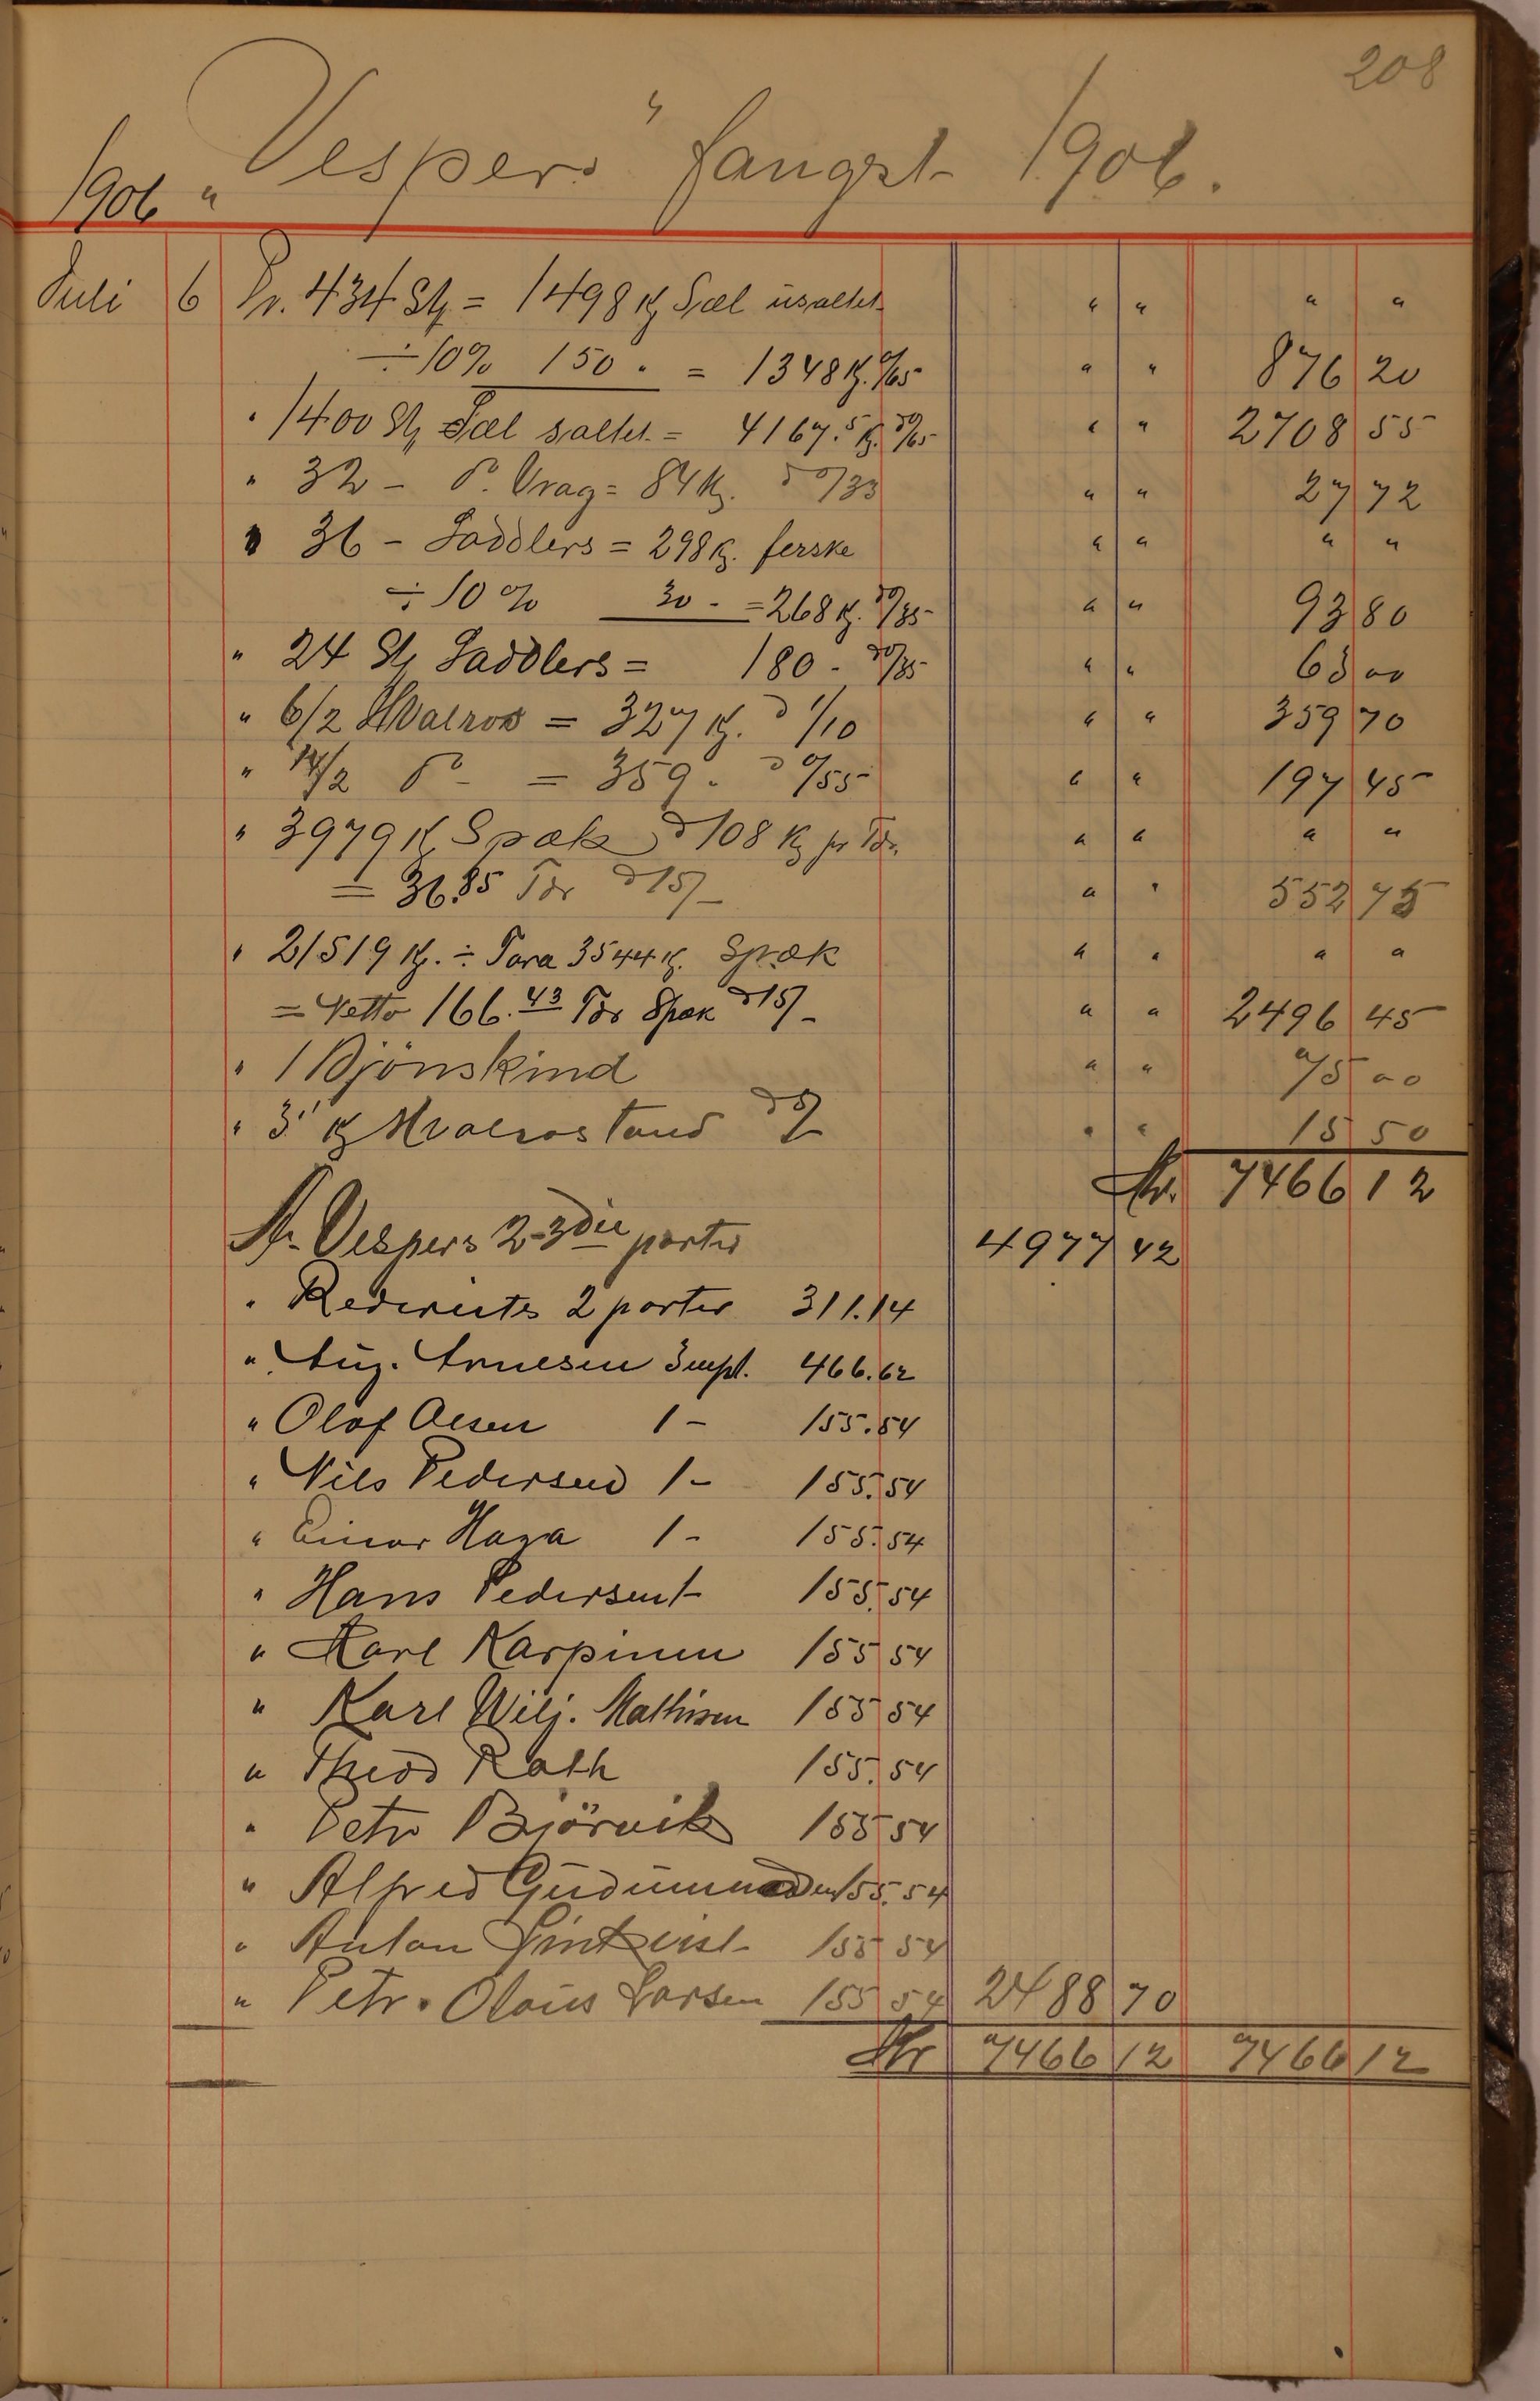 208
1906 "Vespers" fangst 1906.
Juli 6 Pr. 434 Stz = 1498 Kg Sæl üsaltet " " " "
÷ 10% 150 " = 1348 Kg. 0/65 " " 876 20
" 1400 Stz Sæl saltet = 4167.5 Kg. à 0/65 " " 2708 55
" 32 - Do. Vrag = 84 Kg. à 0/33 " " 27 72
" 36 - Saddlers = 298 Kg. ferske " " " "
÷ 10% 30 - = 268 Kg. à 0/35 " " 93 80
" 24 Stz Saddlers = 180 - à 0/35 " " 63 00
" 6/2 Hvalros = 327 Kg. à 1/10 " " 359 70
" 14/2 Do - = 359 " à 0/55 " " 197 45
" 3979 Kg Spæk à 108 Kg pr Tdr. " " " "
= 36.85 Tdr à 15/- " " 552 75
" 21519 Kg. ÷ Tara 3544 Kg. Spæk " " " "
= Netto 166.43 Tdr Spæk à 15/- " " 2496 45
" 1 Bjönskind " " 75 00
" 3.1 Kg Hvalrostand à 5/- " " 15 50
Kr. 7466 12
Pr. Vespers 2-3die parter 4977 42
" Rederiets 2 parter 311.14
" Aug. Arnesen 3 mpt. 466.62
" Olaf Olsen 1 - 155.54
" Nils Pedersen 1 - 155.54
" Einar Haga 1 - 155.54
" Hans Pedersen 1 - 155.54
" Karl Karpinen 155 54
" Karl Wilj. Mathisen 155 54
" Theod Rath 155.54
" Petr Björvik 155 54
" Alfred Gudmundsen 155.54
" Anton 155 54
" Petr. Olaüs Larsen 155 54 2488 70
Kr 7466 12 7466 12